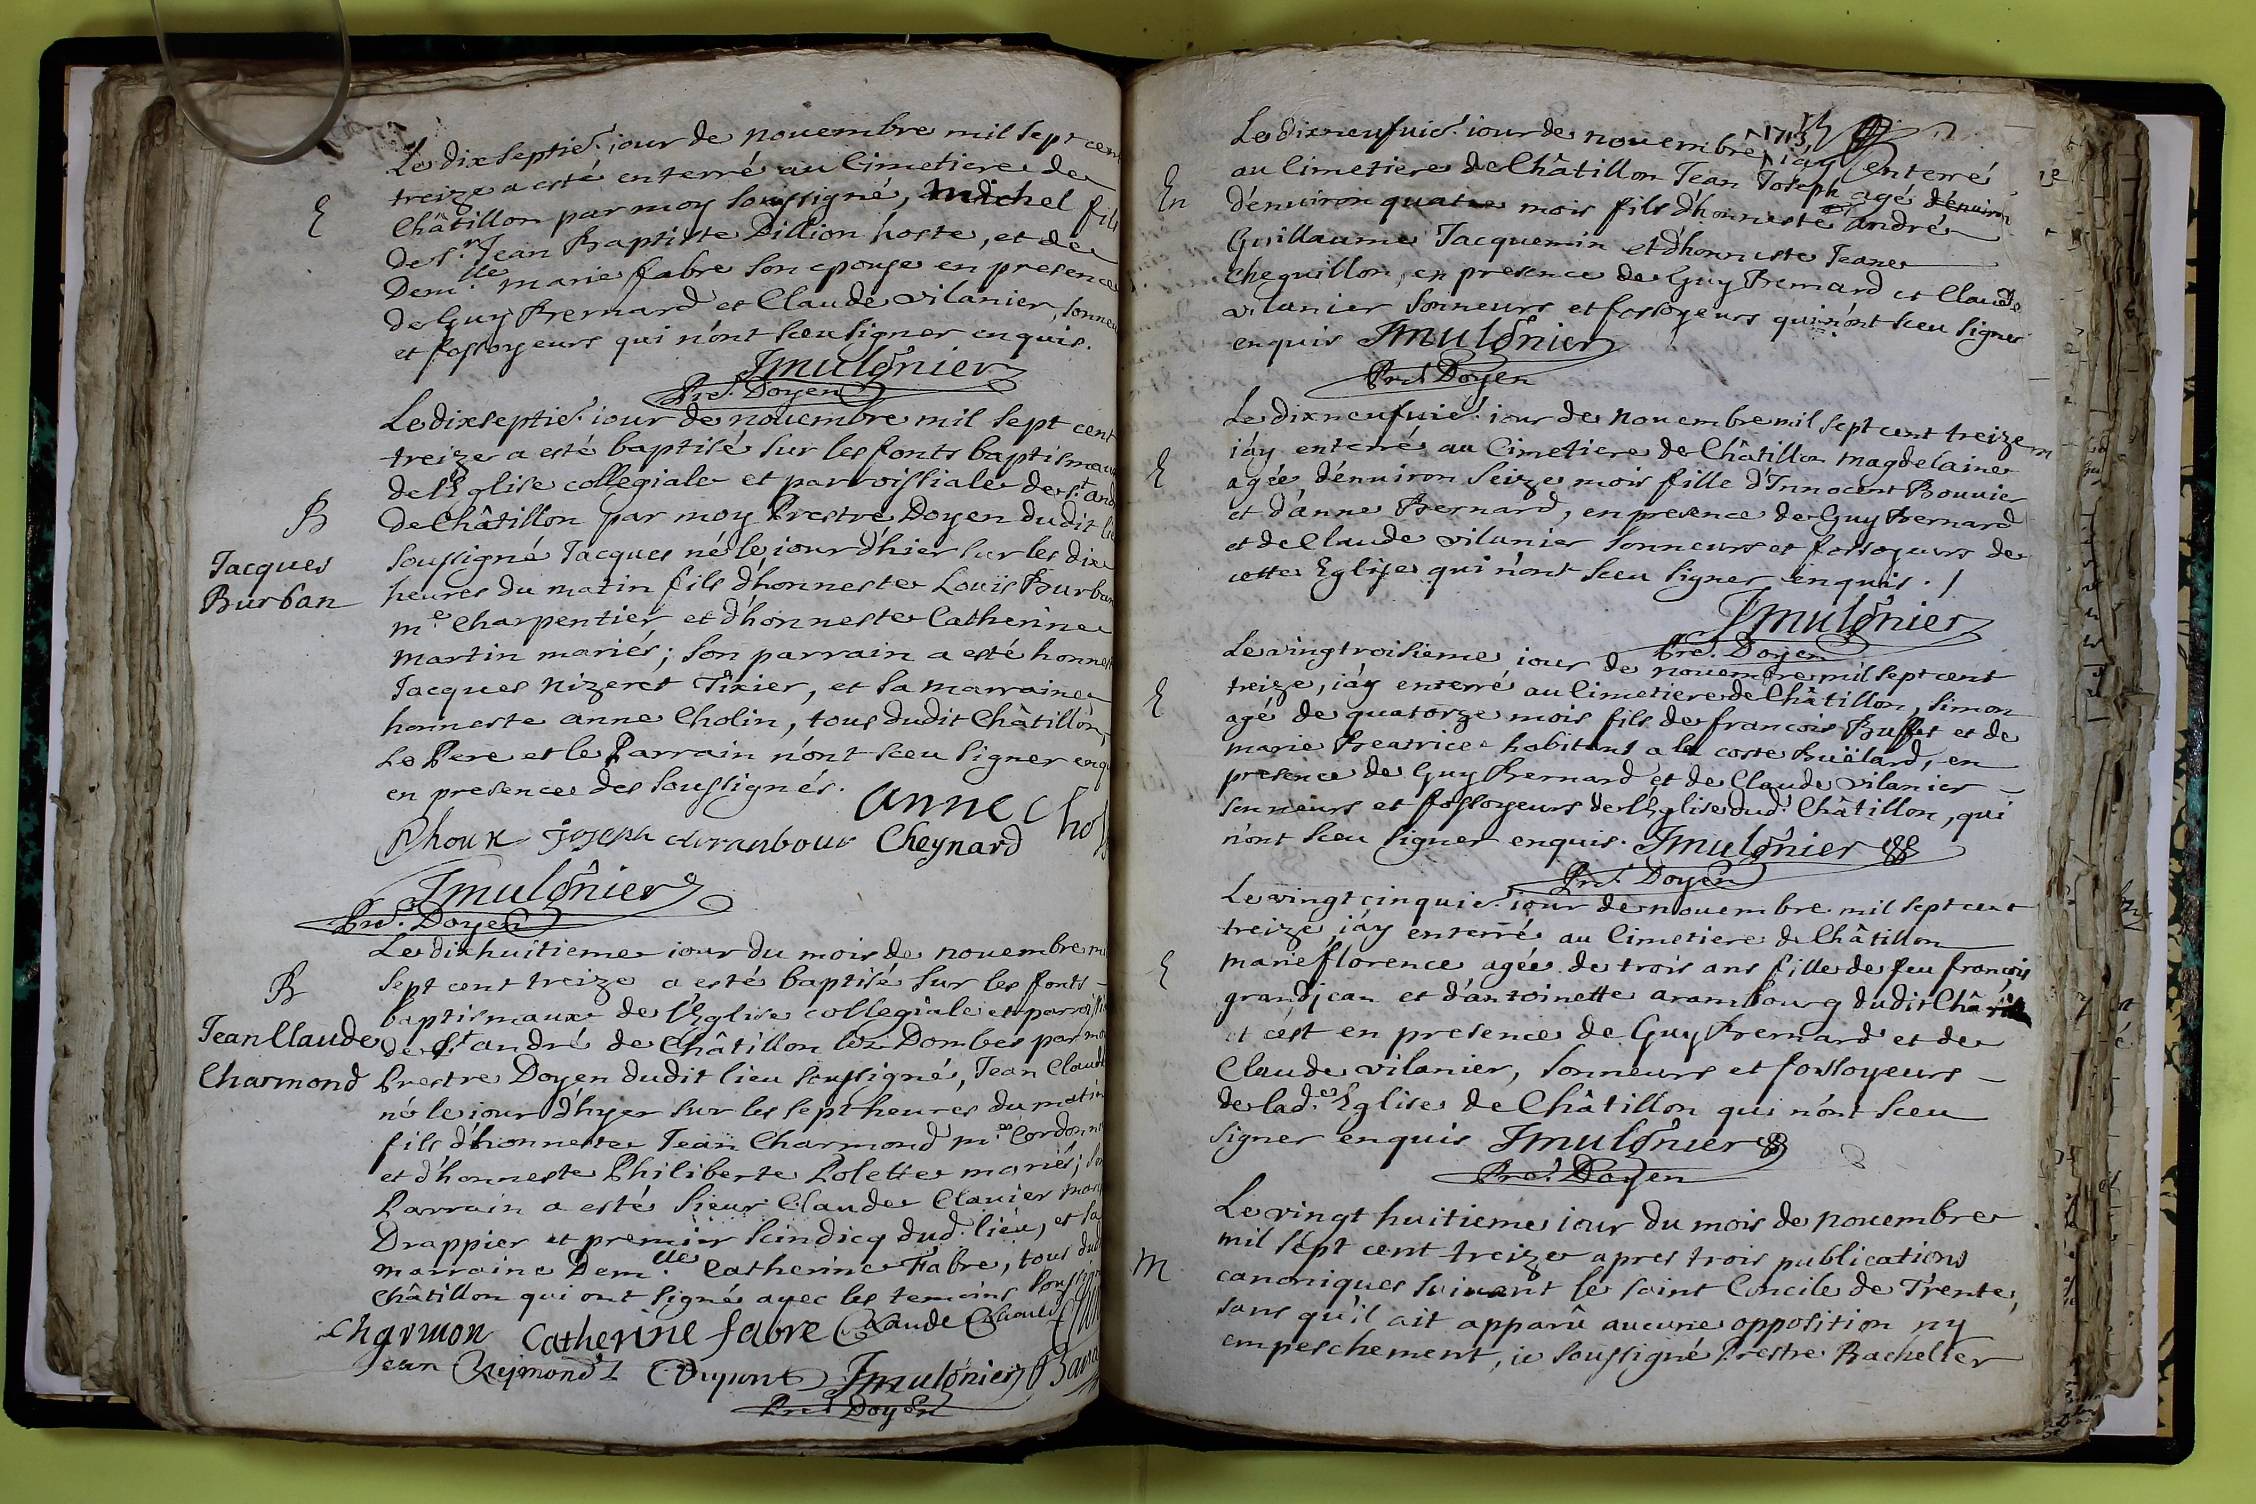 Le dixseptie. iour de nouembre mil sept cen
treize a esté enterré au Cimetiere de
E
Châtillon par moy soussigné, Michel fils
de Sr. Jean Baptiste Dillion hoste, et de
Dem.lle marie fabre son epouse en presence
de Guy Bernard et Claude vilanier, sonneu
et fossoyeurs qui n'ont sceu signer enquis.
Jmulônier
Pre. Doyen
Le dixseptie. iour de nouembre mil sept cent
treize a esté baptisé sur les fonts baptismau
de l'Eglise collegiale et parroissiale de St. And
B
de Châtillon par moy Prestre Doyen dudit lie
Jacques
Burban
soussigné Jacques né le iour d'hier sur les dix
heures du matin fils d'honneste Louis Burban
me. Charpentier et d'honneste Catherine
Martin mariés; son parrain a esté honnest
Jacques Nizeret Tixier, et sa marraine
honneste anne Cholin, tous dudit Châtillon,
Le Pere et le Parrain n'ont sceu signer enq
en presence des soussignés.
anne Chol
Cheynard
Jmulônier
Pre. Doyen
Le dixhuitieme iour du mois de nouembre mi
sept cent treize a esté baptisé sur les fonts
B
baptismaux de l'Eglise collegiale et parroissia
Jean Claude
Charmond
de St. andré de Châtillon lez Dombes par mo
Prestre Doyen dudit lieu soussigné, Jean Claude
né le iour d'hyer sur les sept heures du matin
fils d'honneste Jean Charmond me. Cordonn
et d'honneste Philiberte Polette mariés; so
Parrain a esté sieur Claude Clauier mar
Drappier et premier scindicq dud. lieu, et sa
marraine Dem.lle Catherine Fabre, tous dud
Châtillon qui ont signé avec les temoins soussign
charmon Catherine fabre Claude
Jean Dupont Jmulônier
Pre. Doyen
Le dixneufuie. iour de nouembre 1713 i'ay enterré
au Cimetiere de Châtillon Jean Joseph agé dénuiron
En
d'enuiron quatre mois fils d'honneste andré
Guillaume Jacquemin et d'honneste Jeane
Chequillon, en presence de Guy Bernard et Claude
vilanier sonneurs et fossoyeurs qui n'ont sceu signer
enquis Jmulônier
Pre. Doyen
Le dixneufuie. iour de nouembre mil sept cent treize
i'ay enterré au Cimetiere de Châtillon Magdelaine
E
agée d'enuiron seize mois fille d'Innocent Bouuier
et d'anne Bernard, en presence de Guy Bernard
et de Claude vilanier sonneurs et fossoyeurs de
cette Eglise qui n'ont sceu signer enquis.
Jmulônier
Pre. Doyen
Le vingtroisieme iour de nouembre mil sept cent
treize, i'ay enterré au Cimetiere de Châtillon, simon
E
agé de quatorze mois fils de francois Buffet et de
marie Beatrice habitans a la coste Buëlard, en
presence de Guy Bernard et de Claude vilanier
sonneurs et fossoyeurs de l'Eglise dud. Châtillon, qui
n'ont sceu signer enquis. Jmulônier
Pre. Doyen
Le vingtcinquie. iour de nouembre mil sept cent
treize i'ay enterré au Cimetiere de Châtillon
E
marie florence agée de trois ans fille de feu françois
grandjean et d'antoinette arambourg dudit Châtill
et c'est en presence de Guy Bernard et de
Claude vilanier, sonneurs et fossoyeurs
de lad.e Eglise de Châtillon qui n'ont sceu
signer enquis Jmulônier
Pre. Doyen
Le vingt huitieme iour du mois de nouembre
M
mil sept cent treize apres trois publications
canoniques suiuant le saint Concile de Trente,
sans qu'il ait apparû aucune opposition ny
empeschement, ie soussigné Prestre Bachelier